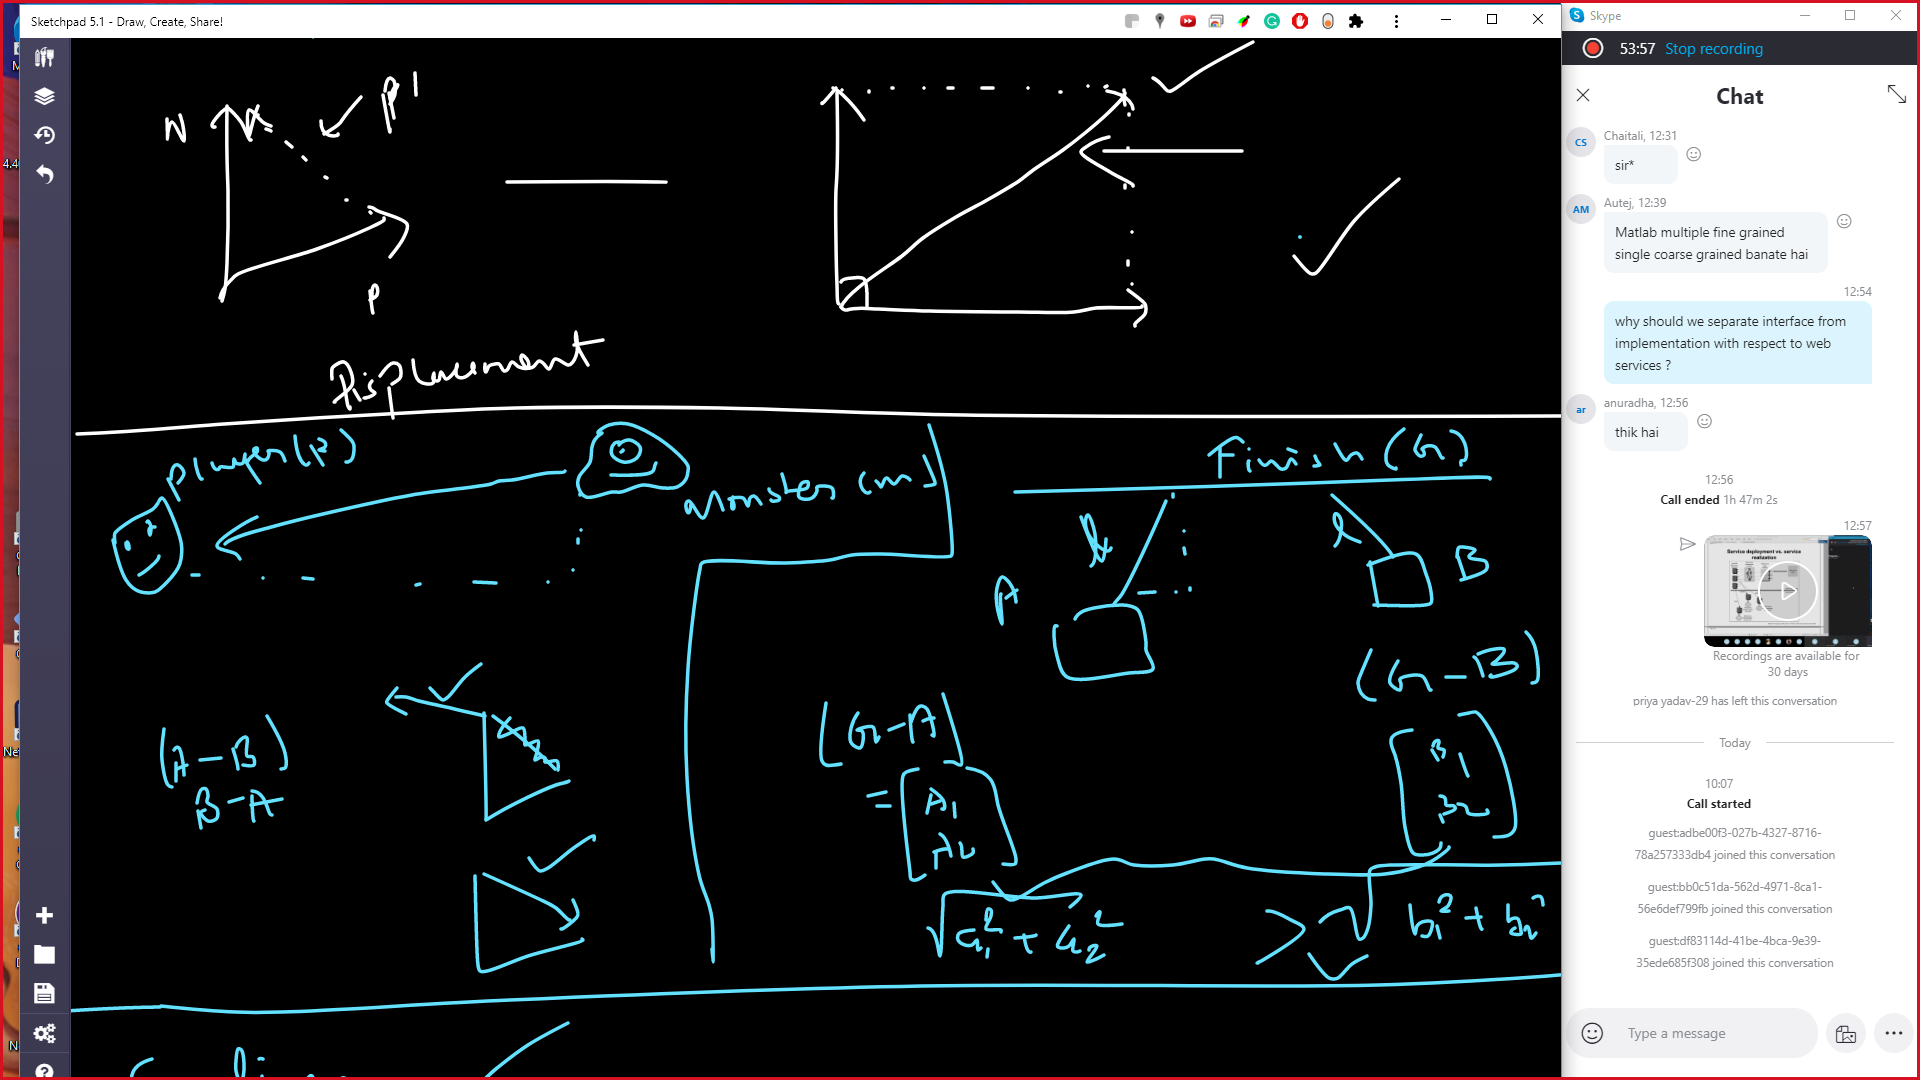 Sketchpad 5.1 - Draw, Create, Share!
N
P'
P
Displacement
Player(P)
Monster (m)
Finish (G)
A
B
(A-B)
B-A
(G-A)
= [A1
A2]
(G-B)
[B1
B2]
√a1² + a2² > √b1² + b2²
Skype
53:57 Stop recording
Chat
CS
Chaitali, 12:31
sir*
AM
Autej, 12:39
Matlab multiple fine grained
single coarse grained banate hai
12:54
why should we separate interface from
implementation with respect to web
services ?
ar
anuradha, 12:56
thik hai
12:56
Call ended 1h 47m 2s
12:57
Service deployment vs. service
realization
Recordings are available for
30 days
priya yadav-29 has left this conversation
Today
10:07
Call started
guest:adbe00f3-027b-4327-8716-
78a257333db4 joined this conversation
guest:bb0c51da-562d-4971-8ca1-
56e6def799fb joined this conversation
guest:df83114d-41be-4bca-9e39-
35ede685f308 joined this conversation
Type a message